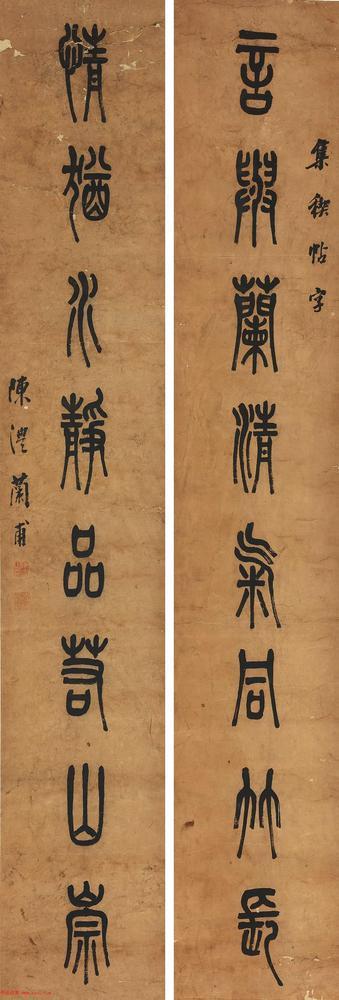 集稧帖字
言與蘭清氣同竹長
情猶水靜品若山崇
陳澧蘭甫